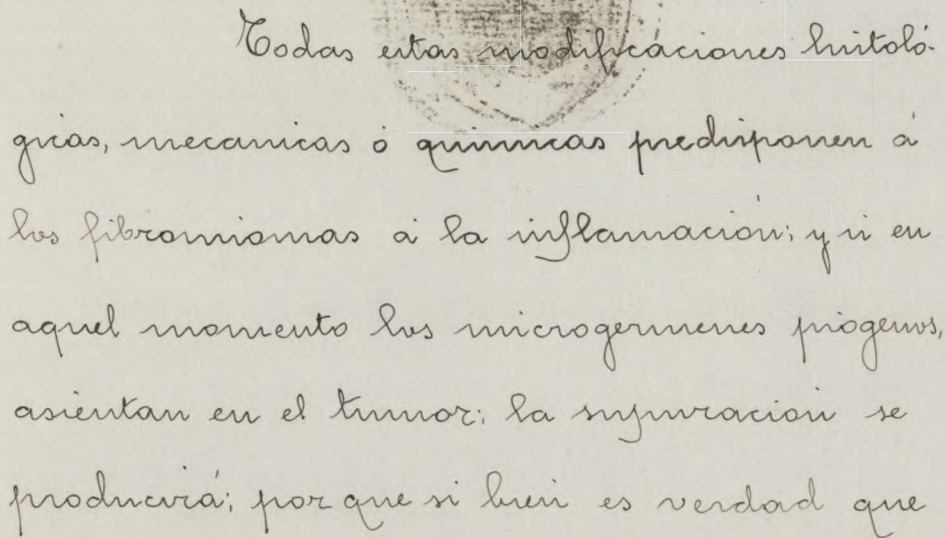 Todas estas modificaciones histoló-
gicas, mecanicas ó quimicas predisponen á
los fibromiomas á la inflamación; y si en
aquel momento los microgermenes, piogenos,
asientan en el tumor; la supuración se
producirá; por que si bien es verdad que